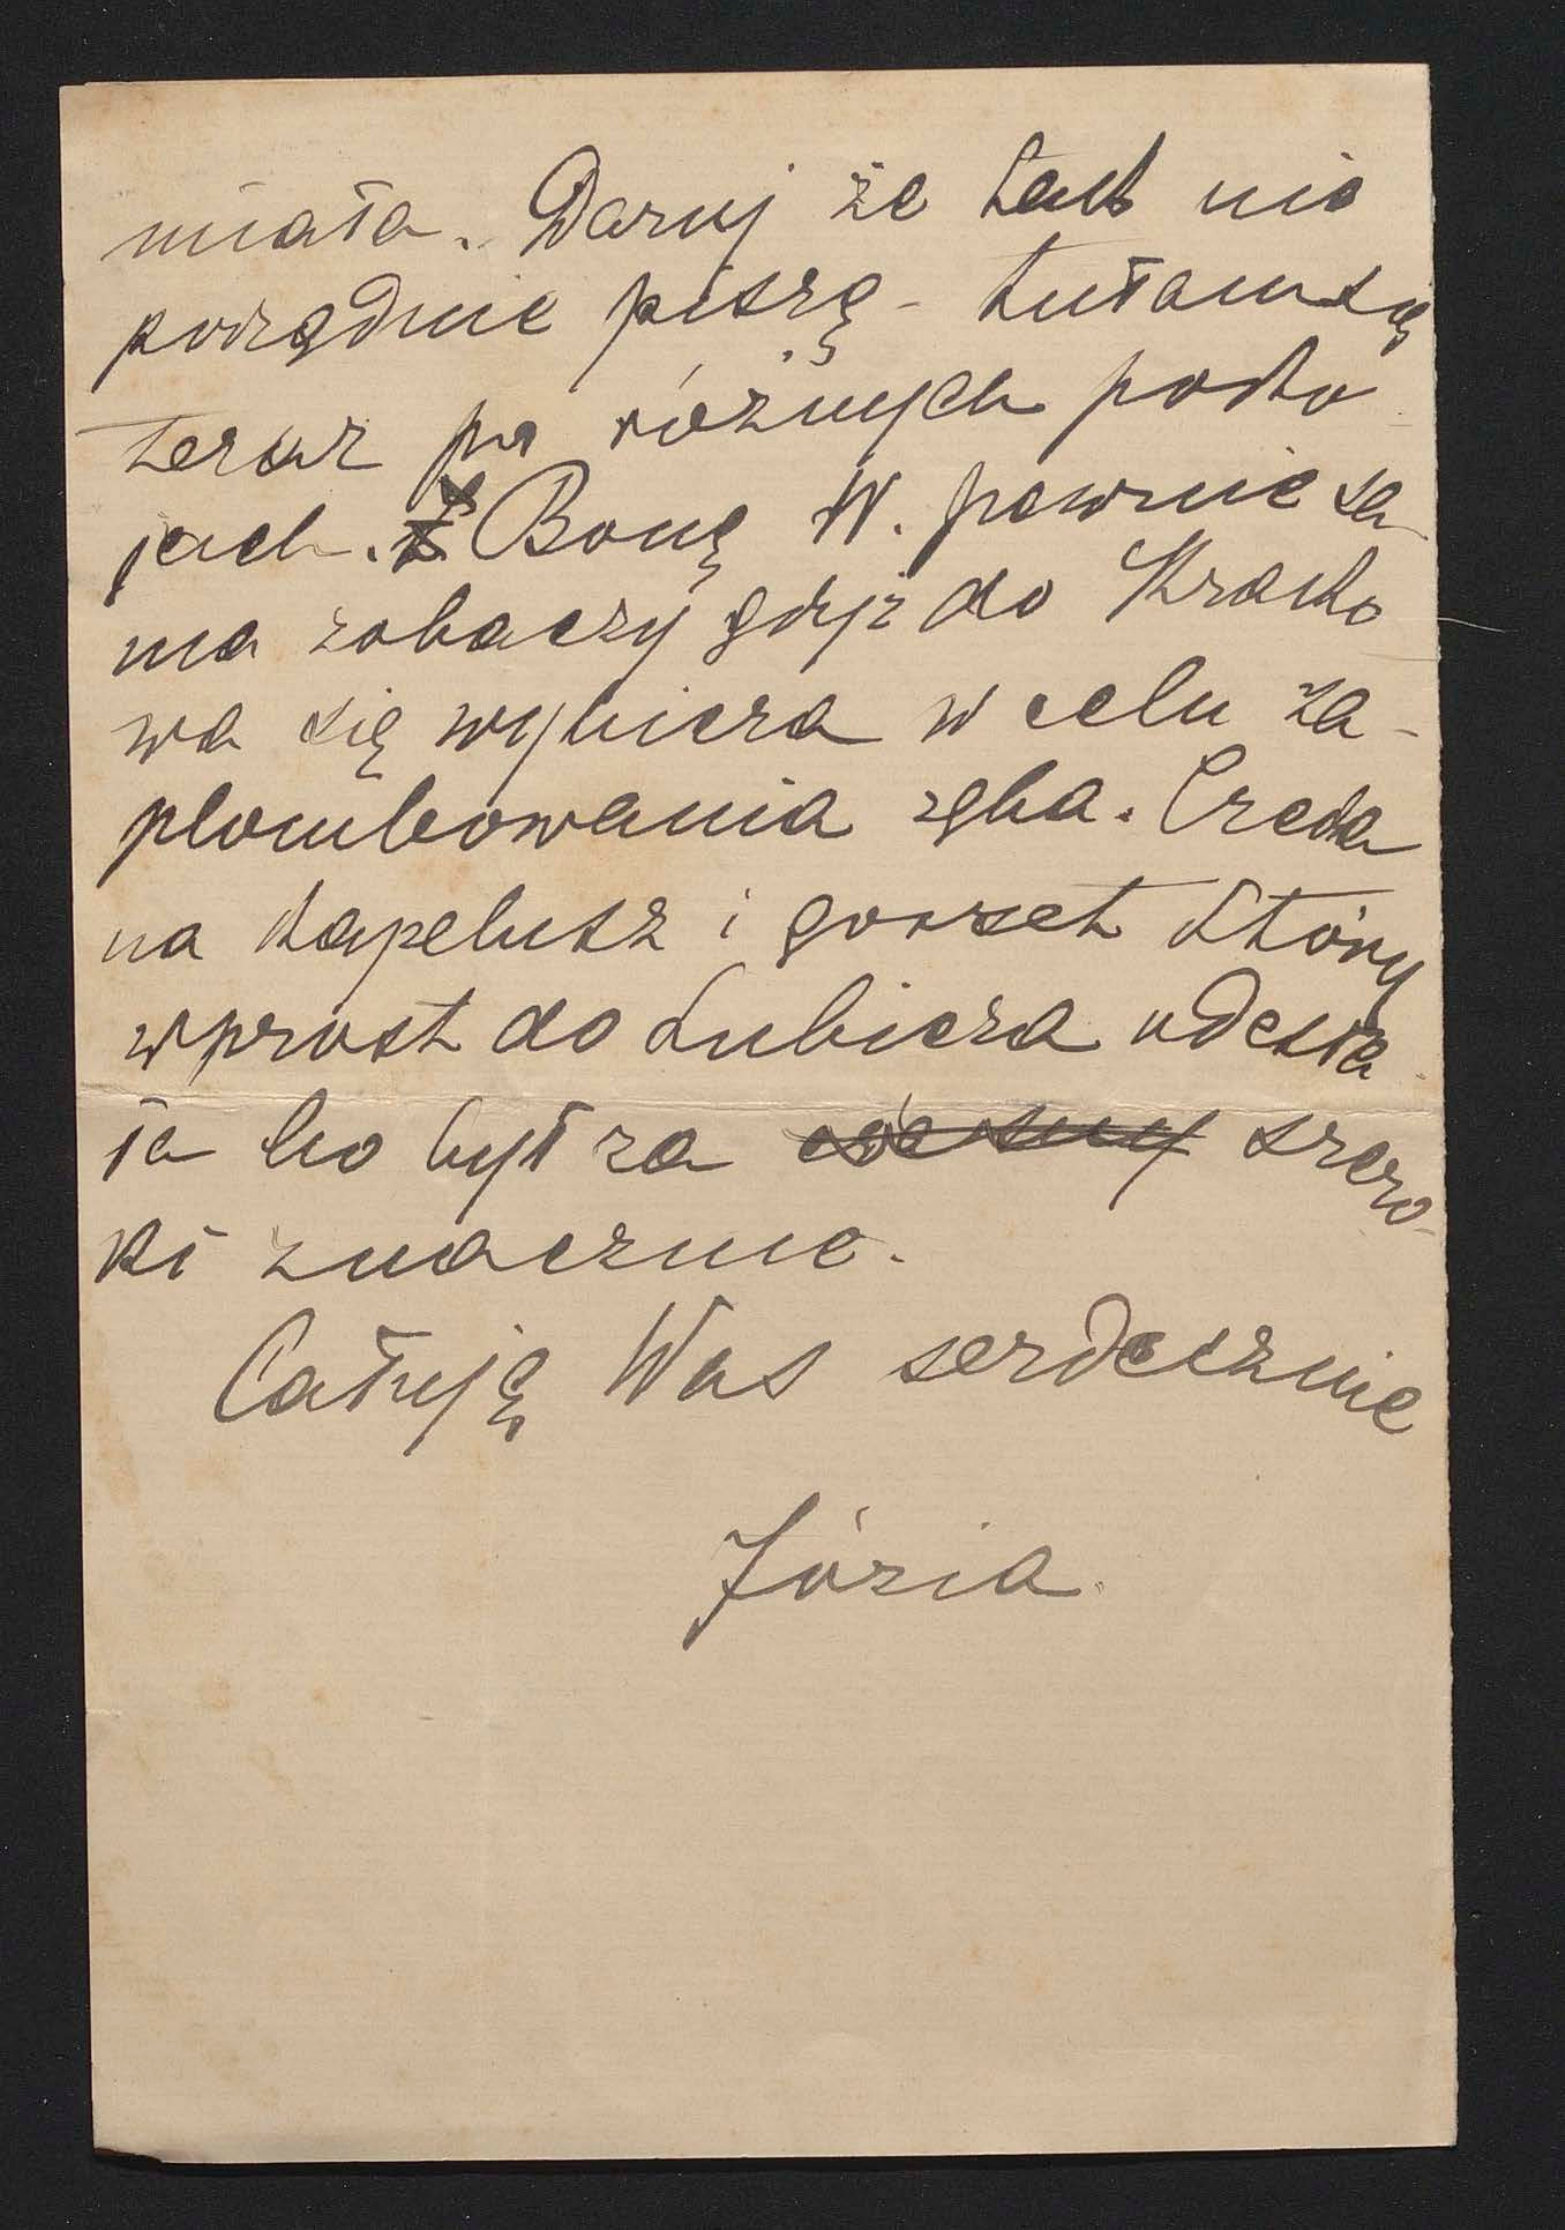 miała. Daruj że tak nie
porządnie piszę - tułam się
teraz po różnych poko
jach. Bonę W. pewnie sa
ma zobaczy gdyż do Krako
wa się wybiera w celu za-
plombowania zęba. Czeka
na kapelusz i gorset który
wprost do Lubicza odesła
ła bo był za szero-
ki znacznie.
Całuję Was serdecznie
Józia.